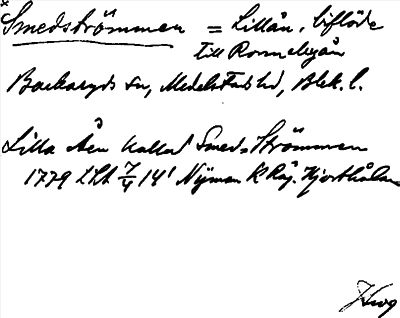 Smedströmmen = Lillån, biflöde
till Ronnebyån
Backaryds sn, Medelstads hd, Blek. l.
Lilla Åen kallad Smed=Strömmen
1779 LSA 7/4 14' Nyman k Råg. Hjorthålan